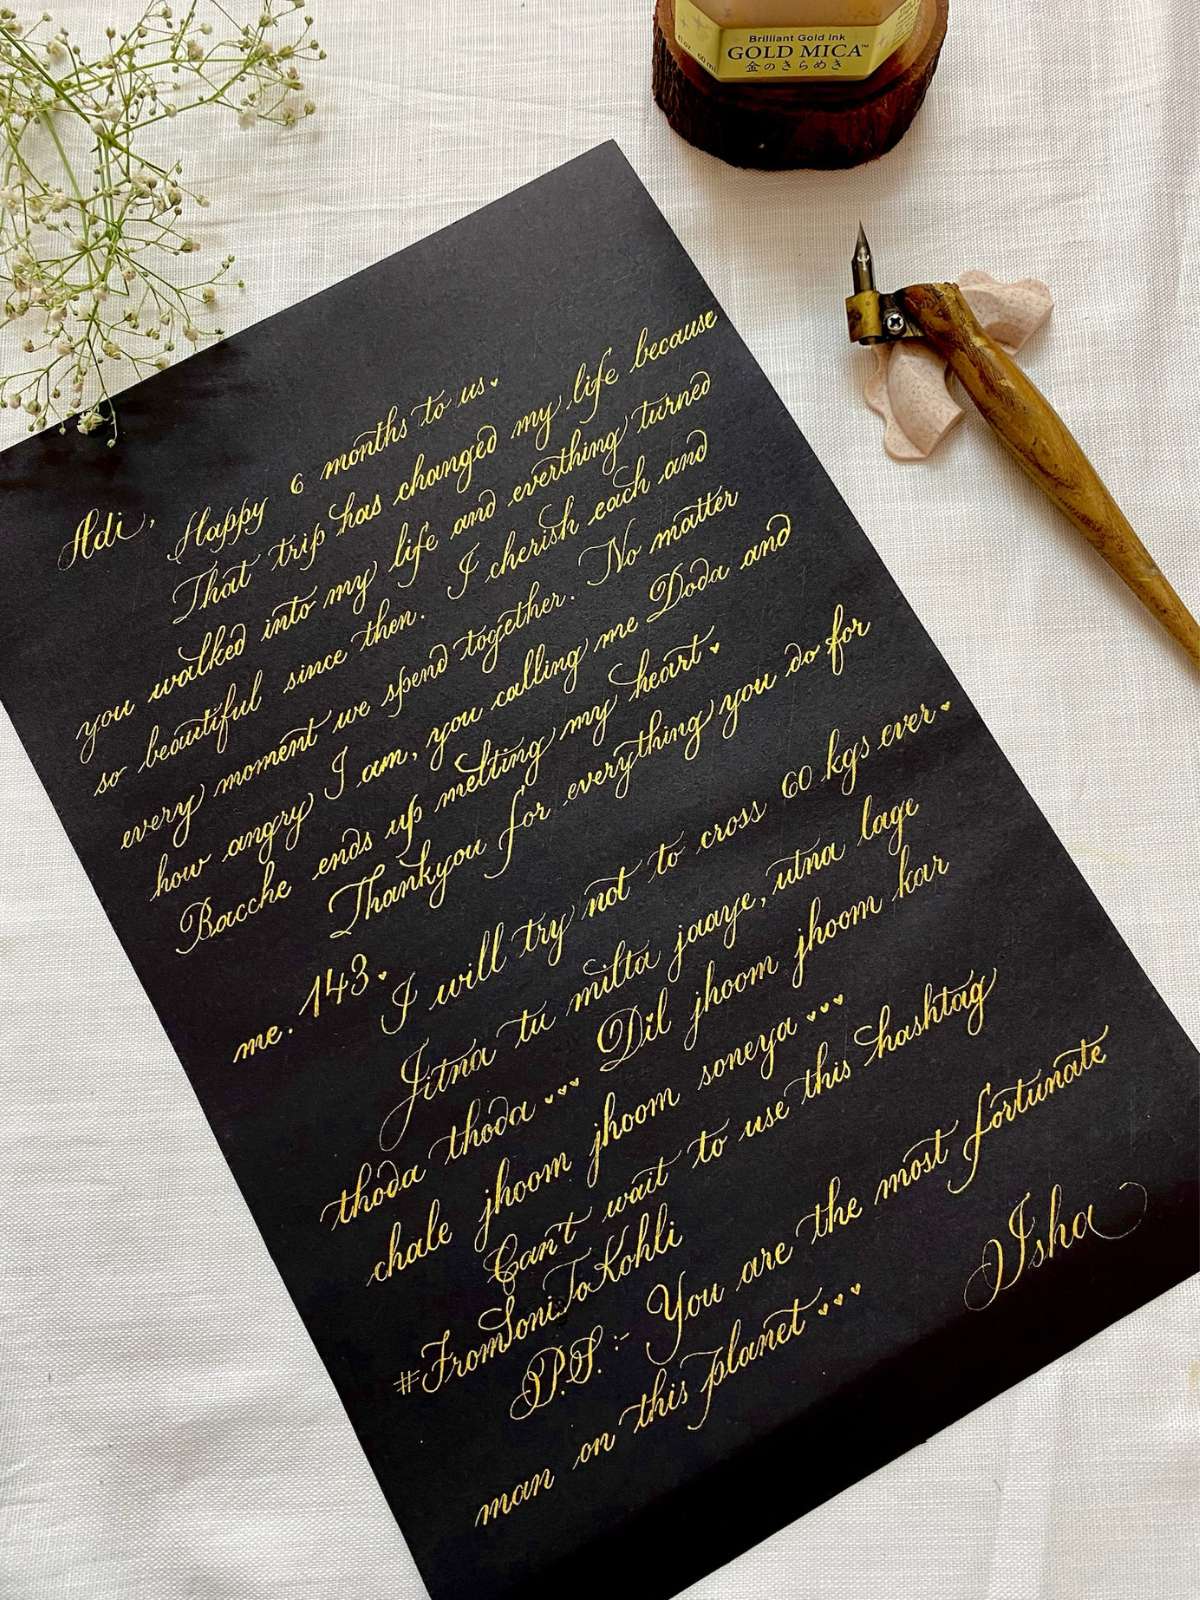 Brilliant Gold Ink
GOLD MICA™
金のきらめき
60 ml
Adi, Happy 6 months to us.
That trip has changed my life because
you walked into my life and everthing turned
so beautiful since then. I cherish each and
every moment we spend together. No matter
how angry I am, you calling me Doda and
Bacche ends up melting my heart.
Thankyou for everything you do for
me. 143.
I will try not to cross 60 kgs ever.
Jitna tu milta jaaye, utna lage
thoda thoda... Dil jhoom jhoom kar
chale jhoom jhoom soneya...
Can't wait to use this hashtag
#FromSoniToKohli
P.S. :- You are the most fortunate
man on this planet...
Isha